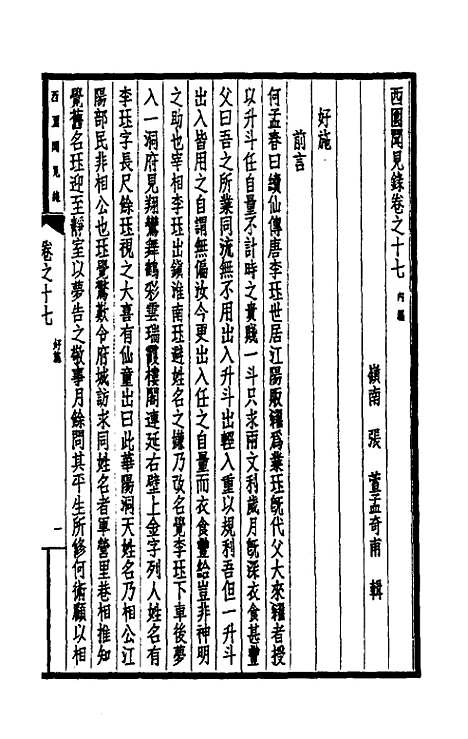 西園聞見錄卷之十七 內編
嶺南 張 萱孟奇甫 輯
好施
前言
何孟春曰續仙傳唐李珏世居江陽販糴為業珏旣代父大來糴者授
以升斗任自量不計時之貴賤一斗只求兩文利歲月旣深衣食甚豐
父曰吾之所業同流無不用出入升斗出輕入重以規利吾但一升斗
出入皆用之自謂無偏汝今更出入任之自量而衣食豐給豈非神明
之助也宰相李珏出鎭淮南珏避姓名之嫌乃改名覺李珏下車後夢
入一洞府見翔鸞舞鶴彩雲瑞霞樓閣連延右壁上金字列人姓名有
李珏字長尺餘珏視之大喜有仙童出曰此華陽洞天姓名乃相公江
陽部民非相公也珏覺驚歎令府城訪求同姓名者軍營里巷相推知
覺舊名珏迎至靜室以夢告之敬事月餘問其平生所修何術願以相
西園聞見錄
卷之十七 好施
一